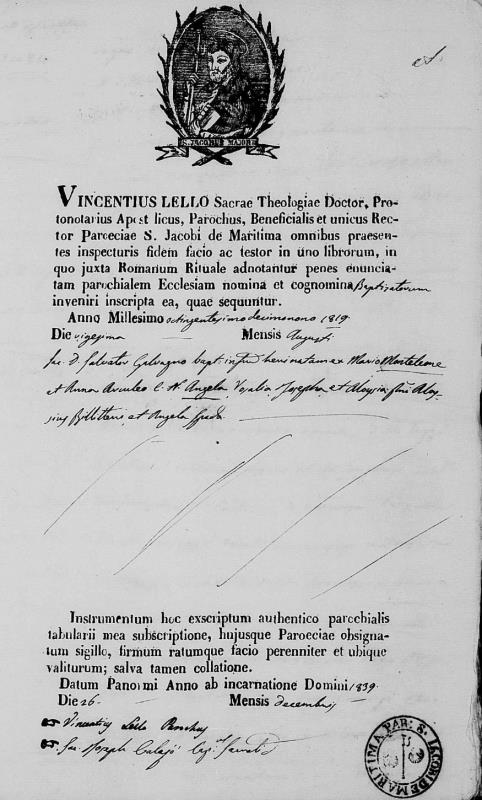 S. JACOBUS MAJOR
VINCENTIUS LELLO Sacrae Theologiae Doctor, Pro-
tonotarius Apost licus, Parochus, Beneficialis et unicus Rec-
tor Paroeciae S. Jacobi de Maritima omnibus praesen-
tes inspecturis fidem facio ac testor in uno librorum, in
quo juxta Romanum Rituale adnotantur penes enuncia-
tam parochialem Ecclesiam nomina et cognomina Baptizatorum
inveniri inscripta ea, quae sequuntur.
Anno Millesimo octingentesimo decimonono 1819.
Die vigesima Mensis Augusti
Sac. D. Salvator Galvagno bapt. inf. heri natam ex Mario Monteleone
et Anna Arculeo C. N. Angela Rosalia Josepha et Aloysia Aloy-
sius Billitteri et Angela
Instrumentum hoc exscriptum authentico parochialis
tabularii mea subscriptione, hujusque Paroeciae obsigna-
tum sigillo, firmum ratumque facio perenniter et ubique
valiturum; salva tamen collatione.
Datum Panormi Anno ab incarnatione Domini 1839.
Die 26 Mensis decembris
Vincentius Lello Parochus
Sac. Joseph
PAR: S. IACOBI DE MARITIMA